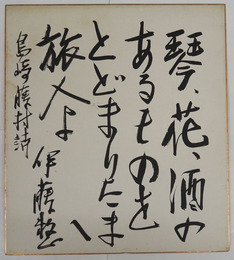 琴、花、酒の
あるものを
とどまりたま
へ
旅人よ
伊藤整
島崎藤村詩